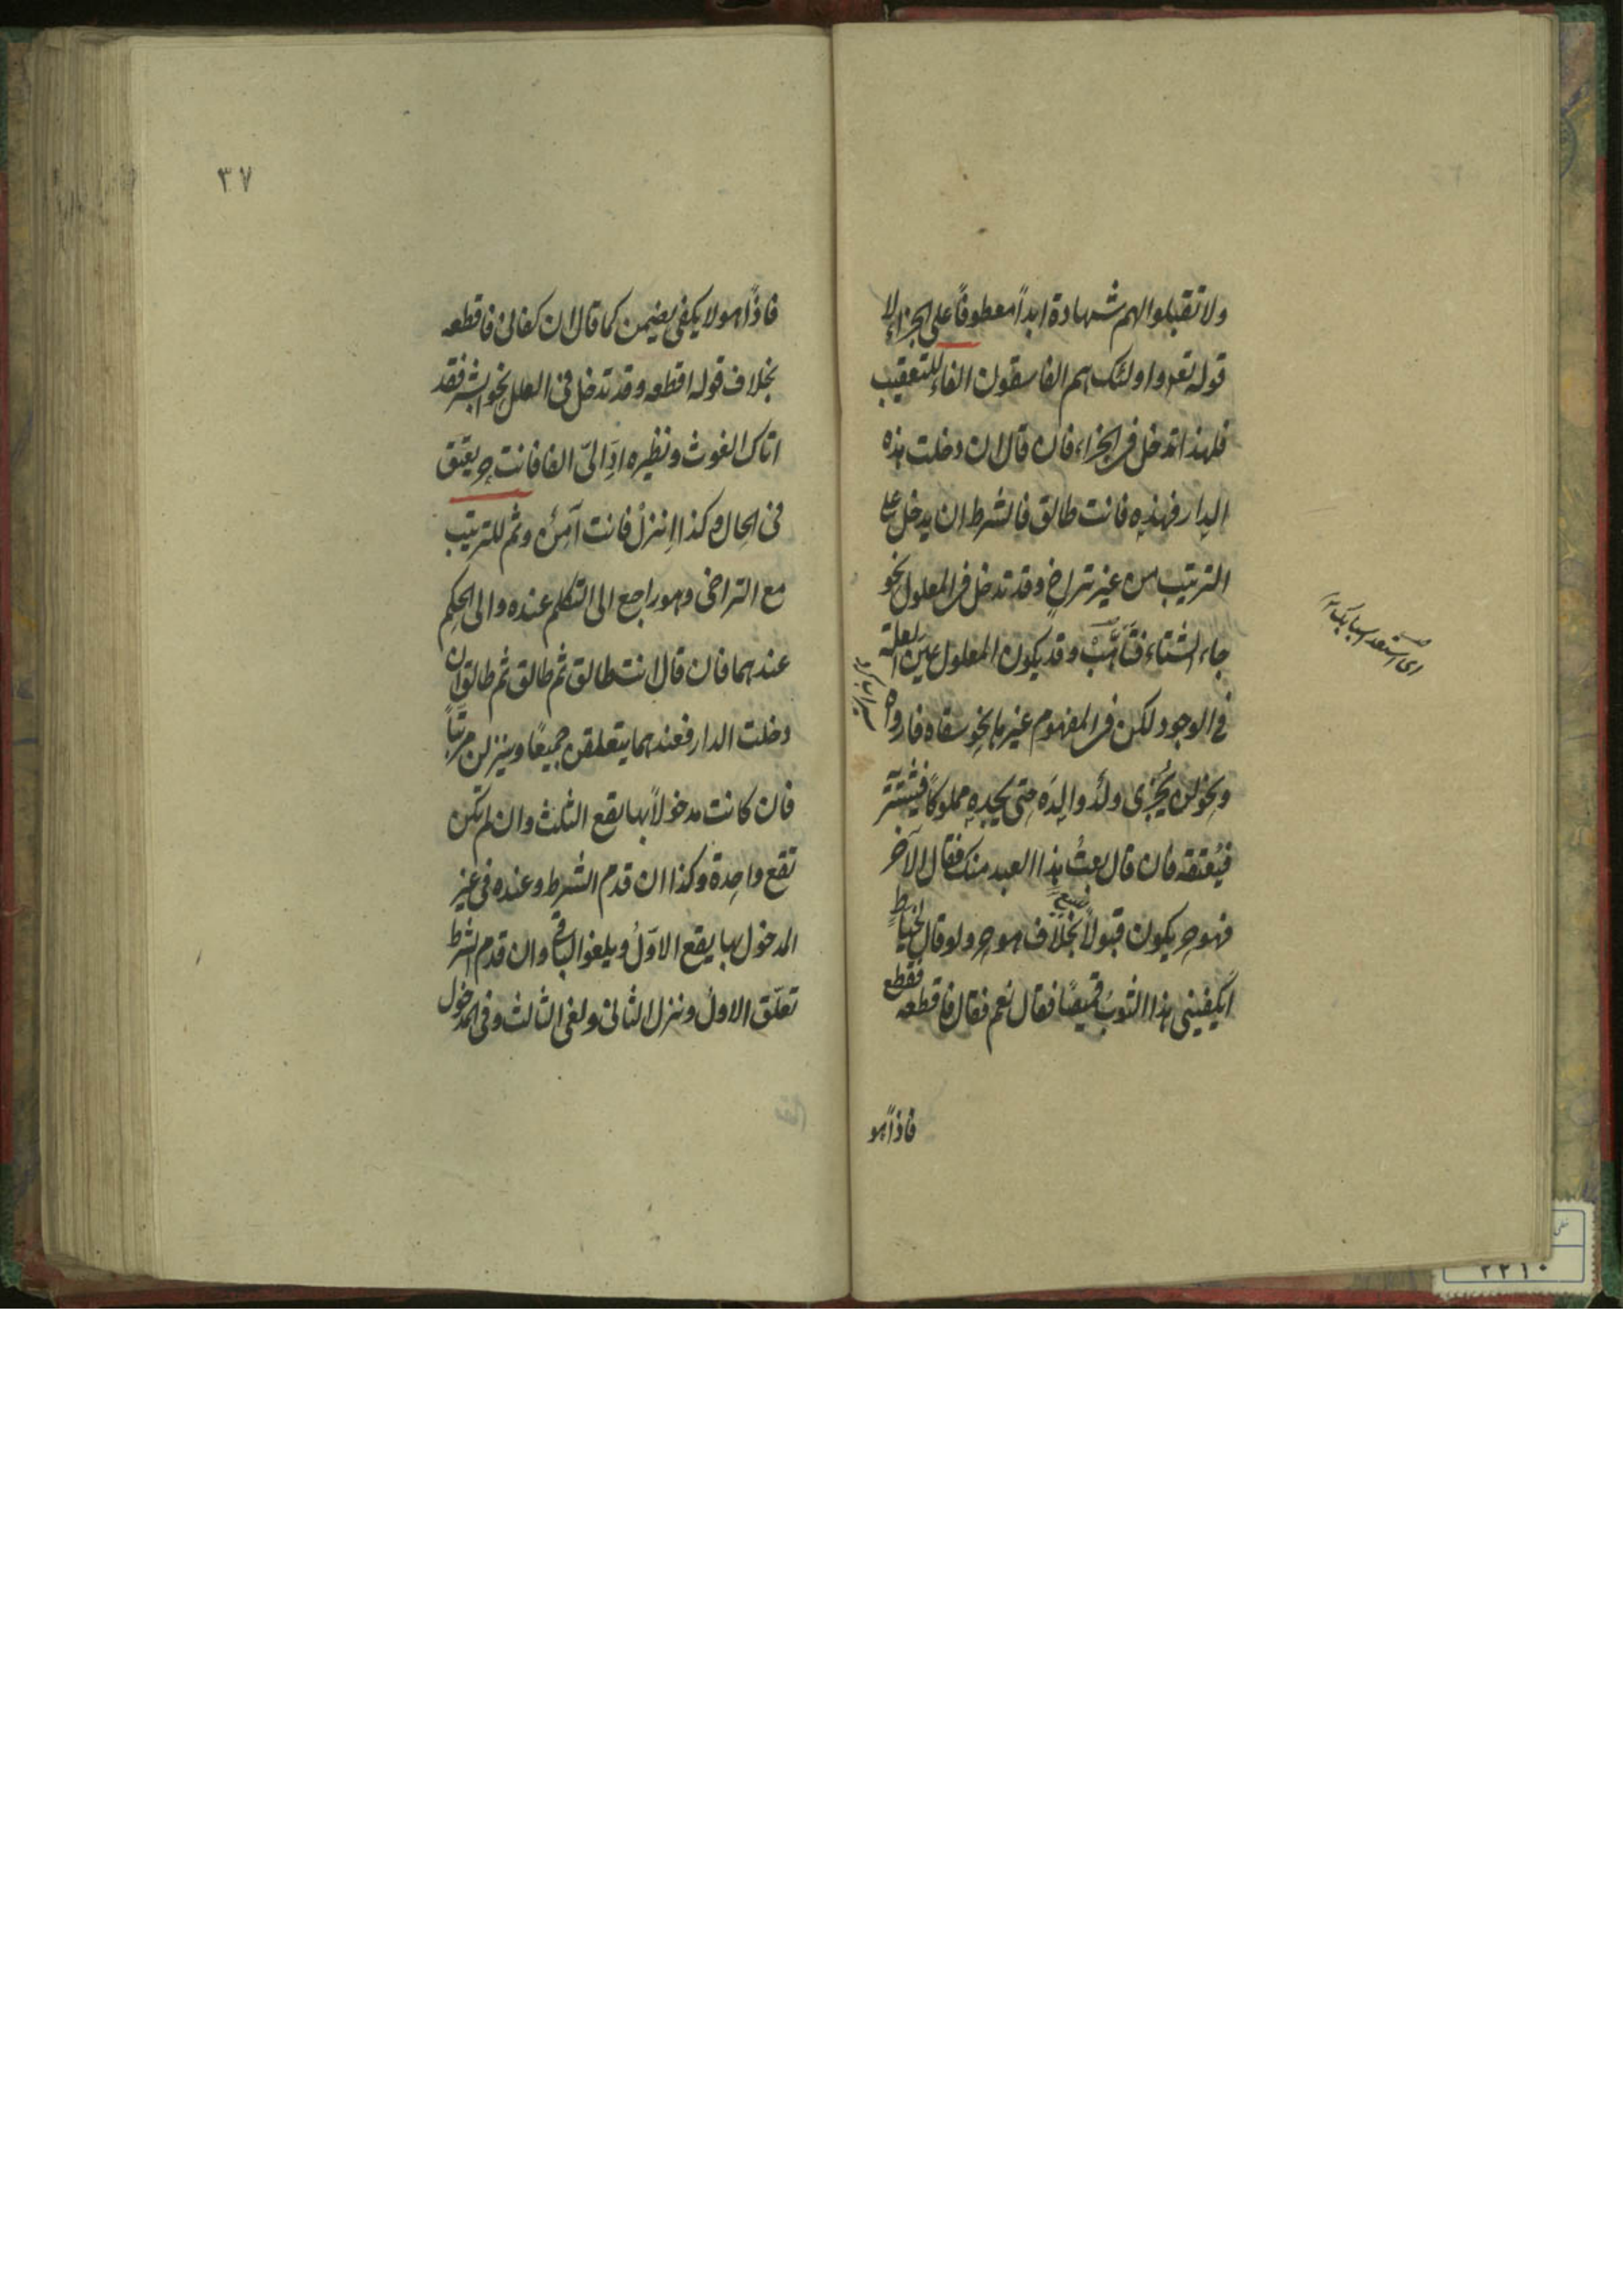 ولا تقبلوا لهم شهادة ابداً معطوفاً على الجزاء لا
قوله تعه واولئك هم الفاسقون الفاء للتعقيب
فلهذا تدخل فى الجزاء فان قال ان دخلت هذه
الدار فهذه فانت طالق فالشرط ان يدخل على
الترتيب من غير تراخٍ وقد تدخل فى المعلول نحو
جاء الشتاء فتأهّبْ وقد يكون المعلول عين العلة
فى الوجود لكن فى المفهوم غيرها نحو سقاه فارواه
ونحو لن يُجْزى ولدٌ والِدَه حتى يجده مملوكاً فيشتريَه
فيُعتقه فان قال بعتُ هذا العبد منك فقال الآخر
فهو حر يكون قبولاً بخلاف هو حر ولو قال لخياط
ايكفينى هذا الثوبُ قميصًا فقال نعم فقال فاقطعه فقطع
اى استعد اسبابك
فاذاً هو
٣٧
فاذاً هو لا يكفى يضمن كما قال ان كفانى فاقطعه
بخلاف قوله اقطعه وقد تدخل فى العلل نحو ابشر فقد
اتاك الغوث ونظيره ادِّ الىّ الفا فانت حر يعتق
فى الحال وكذا انزلْ فانت آمِنٌ وثم للترتيب
مع التراخى وهو راجع الى التكلم عنده والى الحكم
عندهما فان قال انت طالق ثم طالق ثم طالق ان
دخلت الدار فعندهما يتعلقن جميعًا وينزلن مرتباً
فان كانت مدخولاً بها يقع الثلث وان لم تكن
تقع واحدة وكذا ان قدم الشرط وعنده فى غير
المدخول بها يقع الاوّلُ ويلغو الباقى وان قدم الشرط
تعلّق الاولُ ونزل الثانى ولغى الثالث وفى المدخول